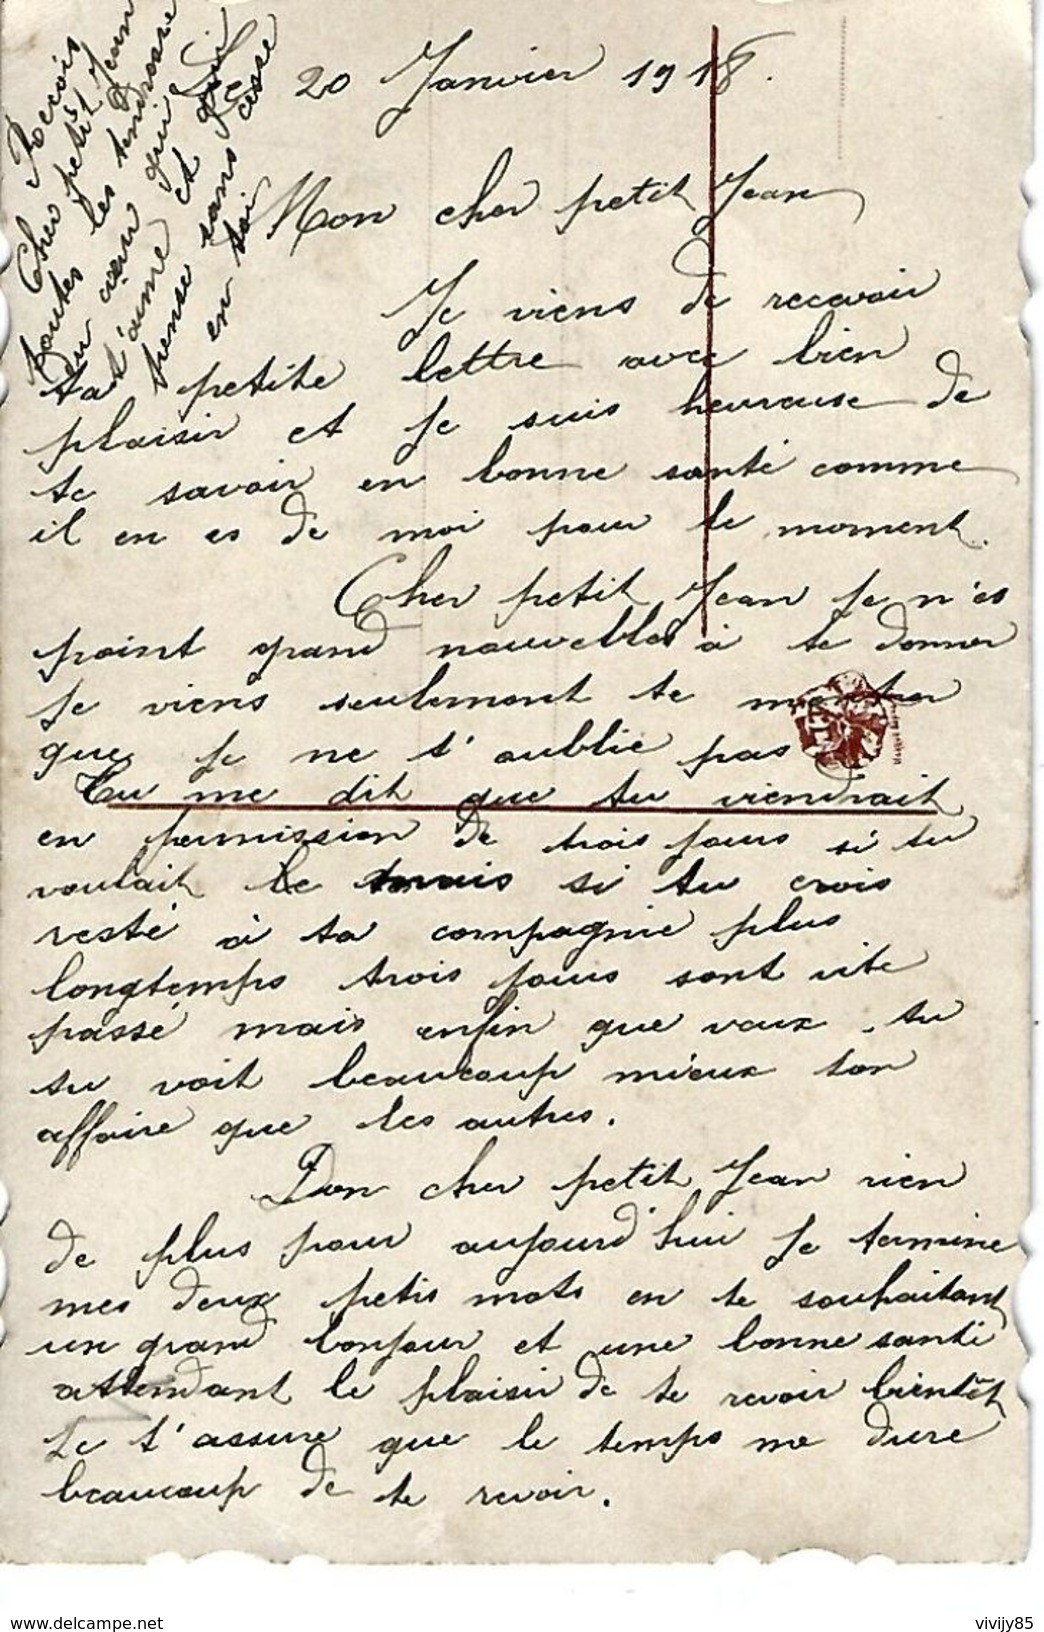 Le 20 Janvier 1918.
Mon cher petit Jean
Je viens de recevoir
ta petite lettre avec bien
plaisir et je suis heureuse de
te savoir en bonne santé comme
il en es de moi pour le moment.
Cher petit Jean je n'es
point grand nouvelles à te donner
je viens seulement te
que je ne t'oublie pas
Tu me dit que tu viendrait
en permission de trois jours si tu
voulait le mais si tu crois
resté à ta compagnie plus
longtemps trois jours sont vite
passé mais enfin que vaux tu
tu voit beaucoup mieux ton
affaire que les autres.
Don cher petit Jean rien
de plus pour aujourd'hui je termine
mes deux petis mots en te souhaitant
un grand bonjour et une bonne santé
attendant le plaisir de te revoir bientôt
Je t'assure que le temps me dure
beaucoup de te revoir.
Recois
Cher petit Jean
toutes les tendresse
du cœur qui
t'aime et qui
pense sans cesse
en toi
www.delcampe.net
vivijy85